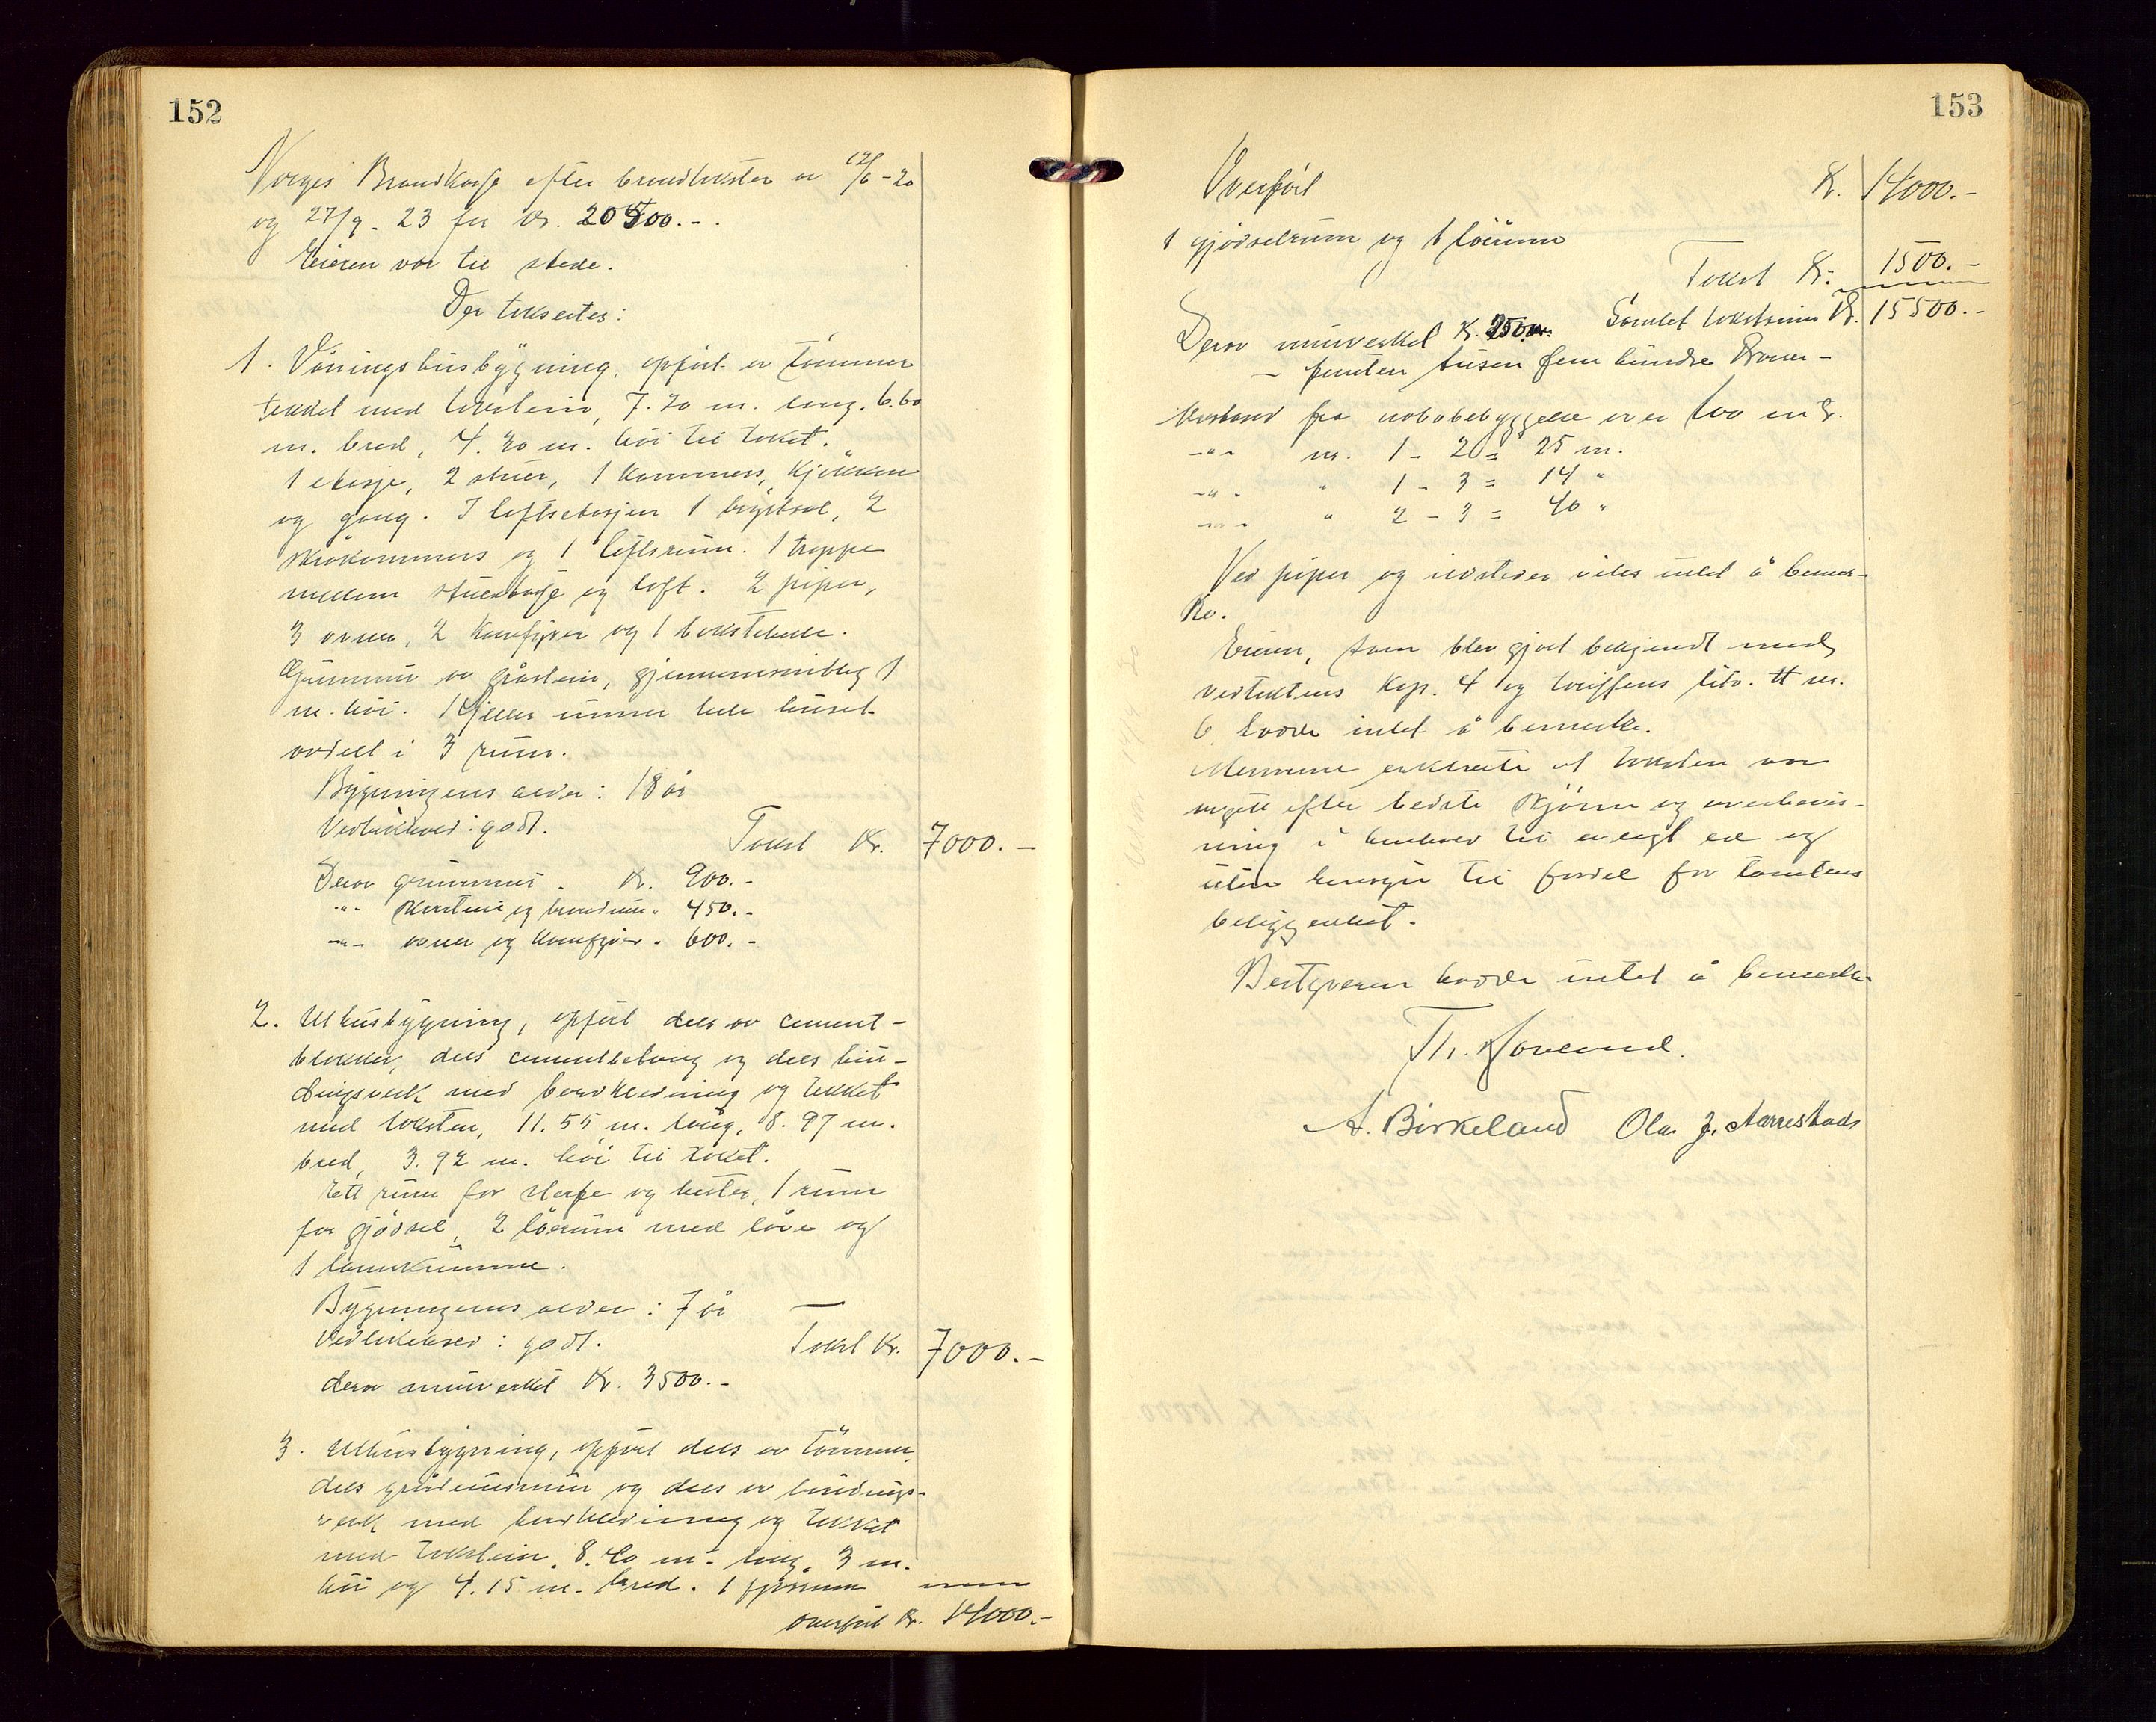 152
Norges Brandkasse efter brandtakster av 12/6 - 20
og 27/9 - 23 for Kr. 20500.-
Eieren var til stede.
Der takseredes:
1. Våningshusbygning, opført av tømmer
tekket med takstein, 7.70 m. lang, 6.60
m. bred, 4.30 m. høi til taket.
1 etasje, 2 stuer, 1 kammers, kjøkken
og gang. I loftsetasjen 1 kvistsal, 2
skråkammers og 1 loftsrum. 1 trappe
mellem stueetasje og loft. 2 piper,
3 ovner, 2 komfyrer og 1 takstebede.
Grunnmur av gråstein, gjennemsnittlig 1
m. høi. 1 kjeller under hele huset
avdelt i 3 rum.
Bygningens alder: 18 år
Vedlikehold: godt.
Takst Kr. 7000.-
Derav grunnmur - Kr. 900.-
-"- skorstein og brandmur " 450.-
-"- ovner og komfyrer - 600.-
2. Uthusbygning, opført dels av cement-
blokker, dels cementbetong og dels bin-
dingsverk med bordkledning og tekket
med taksten, 11.55 m. lang, 8.97 m.
bred, 3.92 m. høi til taket.
Ett rum for sluge og hester, 1 rum
for gjødsel, 2 løerum med låve og
1 landkumme.
Bygningens alder: 7 år
Vedlikehold: godt.
Takst Kr. 7000.-
derav murverket Kr. 3500.-
3. Uthusbygning, opført dels av tømmer,
dels gråsteinsmur og dels av bindings-
verk med bordkledning og tekket
med takstein, 8.40 m. lang, 3 m.
høi og 4.15 m. bred. 1 fjøsrum
overført Kr. 14000.-
153
Overført Kr. 14000.-
1 gjødselrum og 1 løerum
Takst Kr. 1500.-
Derav murverket Kr. 250.- Samlet takstsum Kr. 15500.-
- femten tusen fem hundre kroner -
Avstand fra nabobebyggelse over 100 m.
-"- nr. 1 - 2 = 25 m.
-"- " 1 - 3 = 14 "
-"- " 2 - 3 = 40 "
Ved piper og ildsteder viltes intet å bemer-
ke.
Eieren, som blev gjort bekjendt med
vedtektens Kap. 4 og tariffens litr. H nr.
6 hadde intet å bemerke.
Mennene erklærte at taksten var
avgitt efter bedste skjønn og overbevis-
ning i henhold til avlagt ed og
uten hensyn til fordel for tomtens
beliggenhet.
Bestyreren hadde intet å bemerke.
Th. Høreland.
A. Birkeland Ola J. Aarrestad